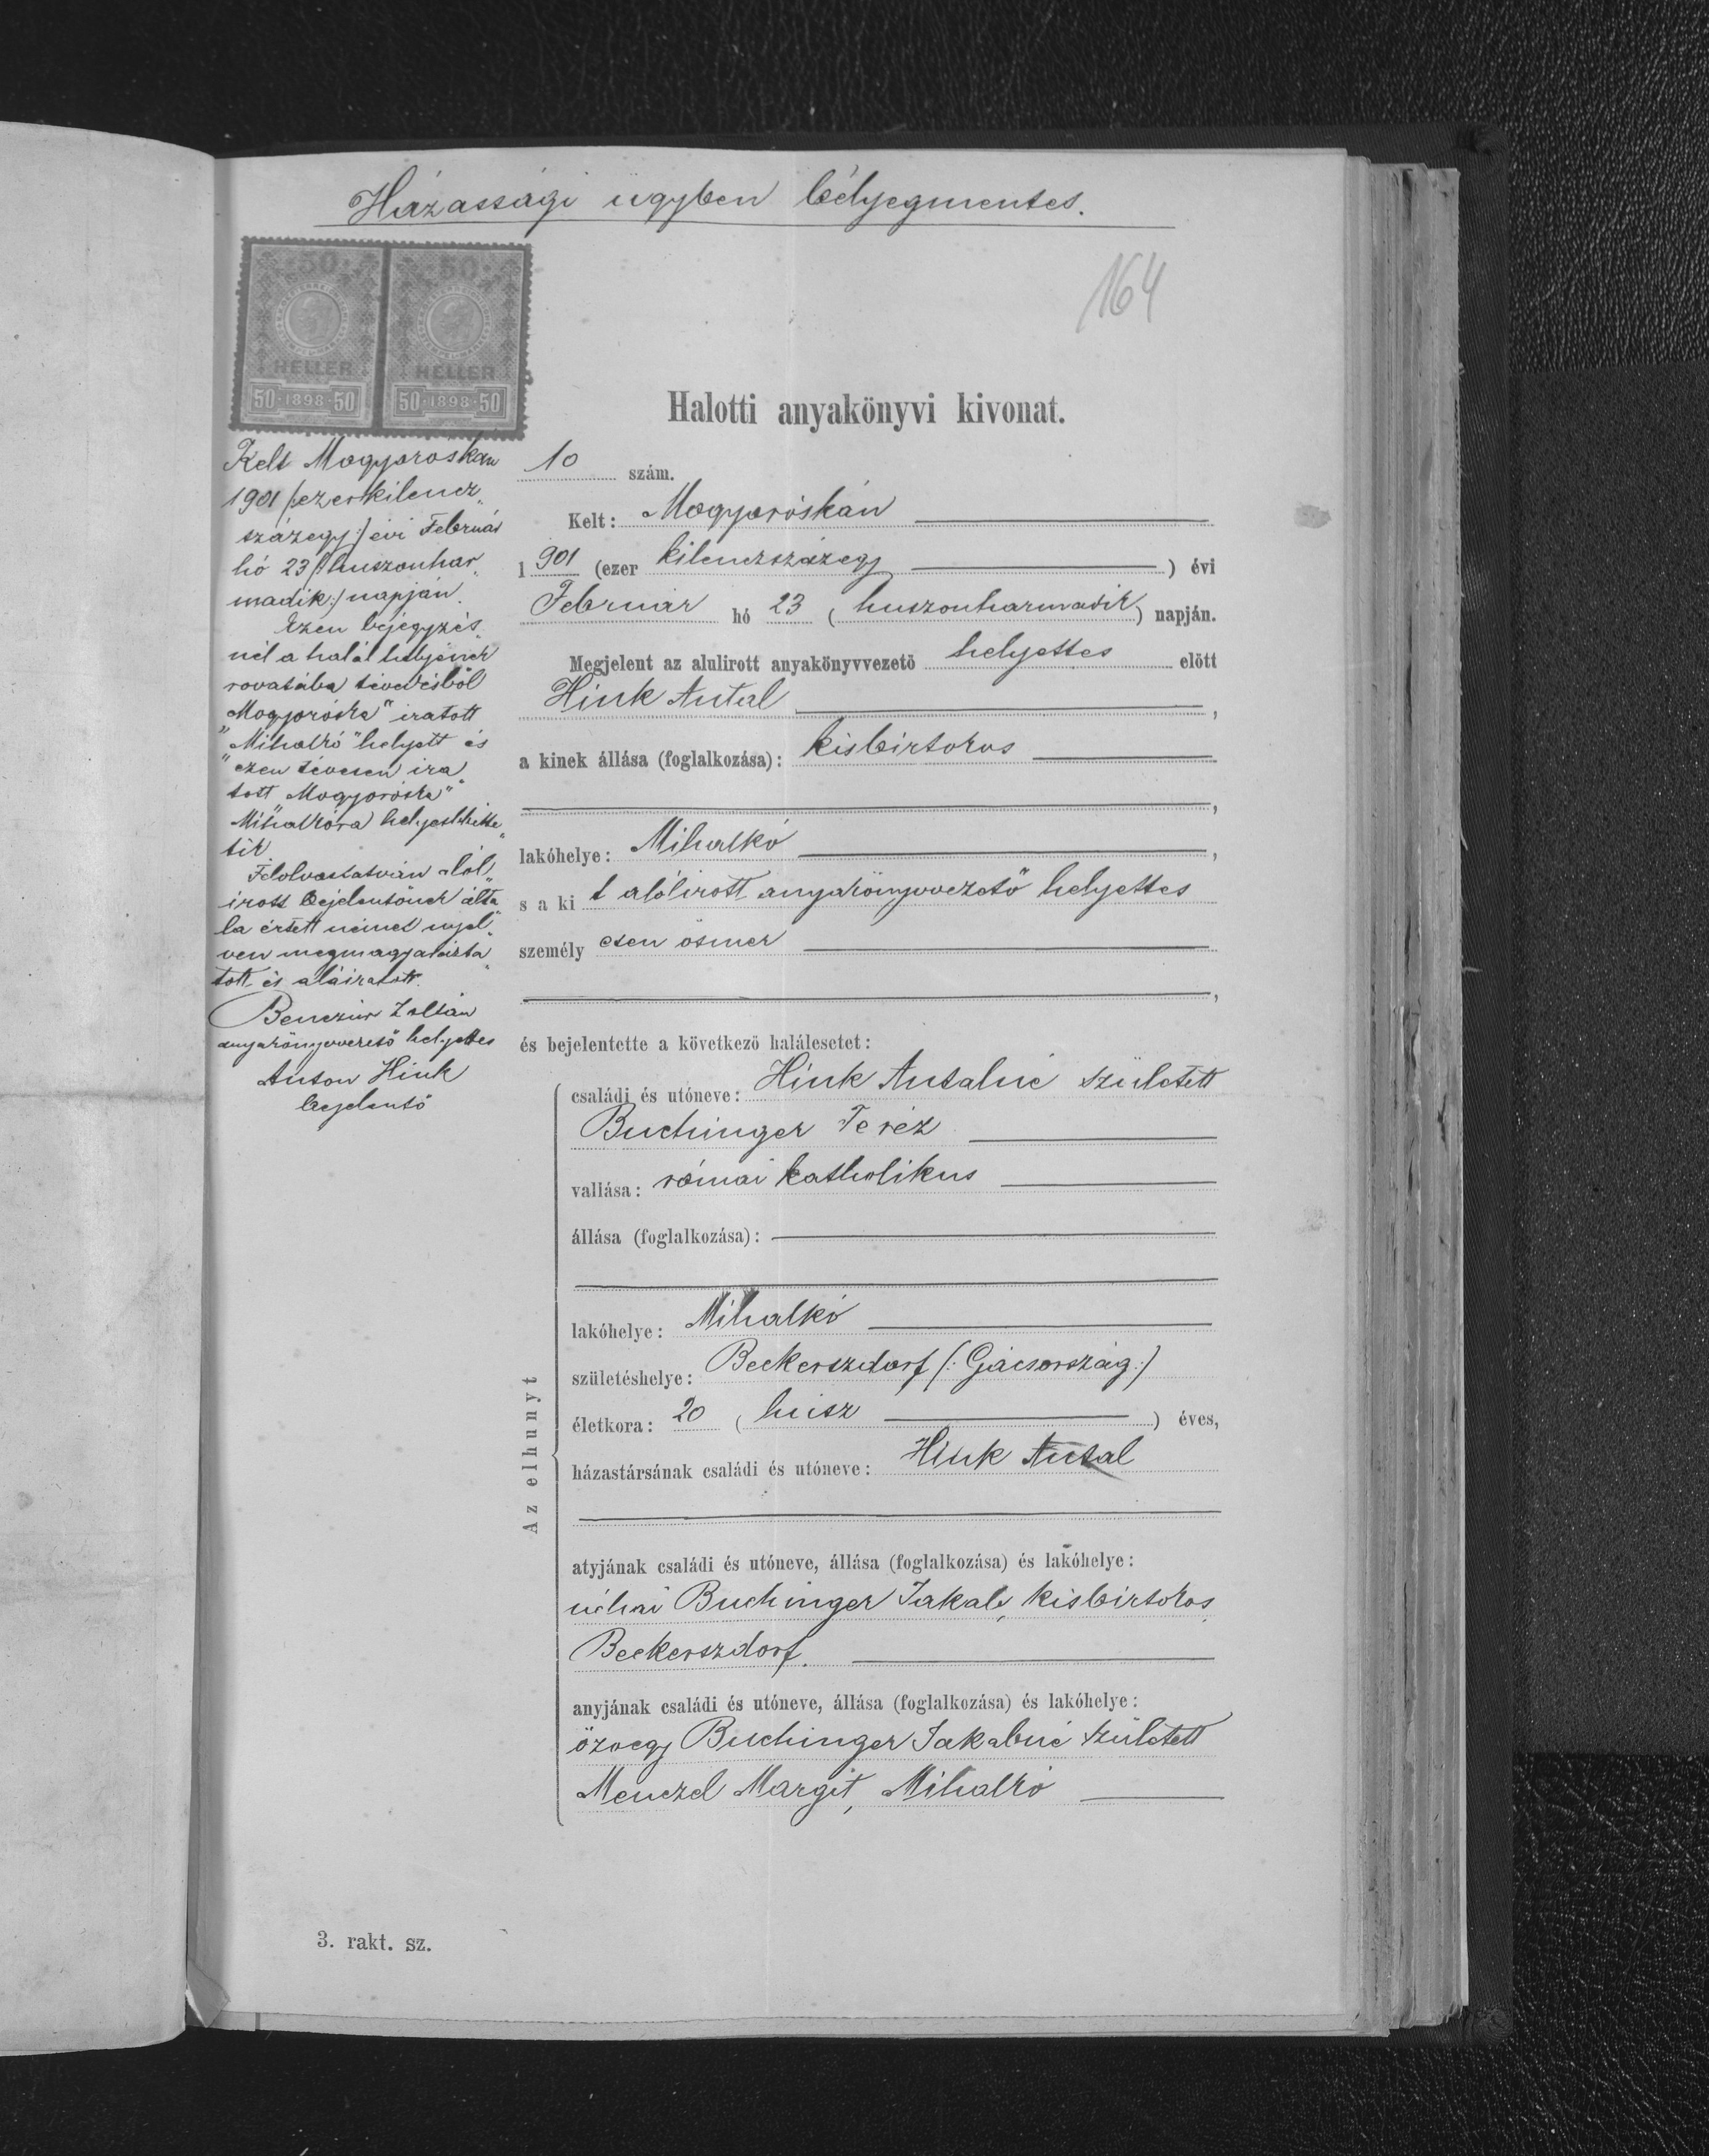 Házassági ügyben bélyegmentes.
164
50 50
HELLER HELLER
50·1898·50 50·1898·50
Halotti anyakönyvi kivonat.
Kelt Mogyoróskán
1901 /:ezerkilencz„
százegy:/ évi Február
hó 23 /:huszonhar„
madik:/ napján.
Ezen bejegyzés„
nél a halál helyének
rovatába tévedésből
„Mogyoróska" iratott
„Mihalkó" helyett és
ezen tévesen ira„
tott „Mogyoróska"
Mihalkóra helyesbitte„
tik
Felolvastatván alól„
irott bejelentőnek álta„
la értett német nyel„
ven megmagyarázta„
tott és aláiratott.
Benczúr Zoltán
anyakönyvvezető helyettes
Anton Hink
bejelentő
10 szám.
Kelt: Mogyoróskán
1 901 (ezer kilenczszázegy ) évi
Február hó 23 (huszonharmadik) napján.
Megjelent az alulirott anyakönyvvezető helyettes előtt
Hink Antal ,
a kinek állása (foglalkozása): kisbirtokos
,
lakóhelye: Mihalkó ,
s a ki t alólirott anyakönyvvezető helyettes
személy esen ösmer
,
és bejelentette a következő halálesetet:
Az elhunyt
családi és utóneve: Hink Antalné született
Buchinger Teréz
vallása: római katholikus
állása (foglalkozása):
lakóhelye: Mihalkó
születéshelye: Beckerszdorf /: Gácsország :/
életkora: 20 (húsz ) éves,
házastársának családi és utóneve: Hink Antal
atyjának családi és utóneve, állása (foglalkozása) és lakóhelye:
néhai Buchinger Jakab, kisbirtokos,
Beckerszdorf.
anyjának családi és utóneve, állása (foglalkozása) és lakóhelye:
özvegy Buchinger Jakabné született
Menczel Margit, Mihalkó
3. rakt. sz.